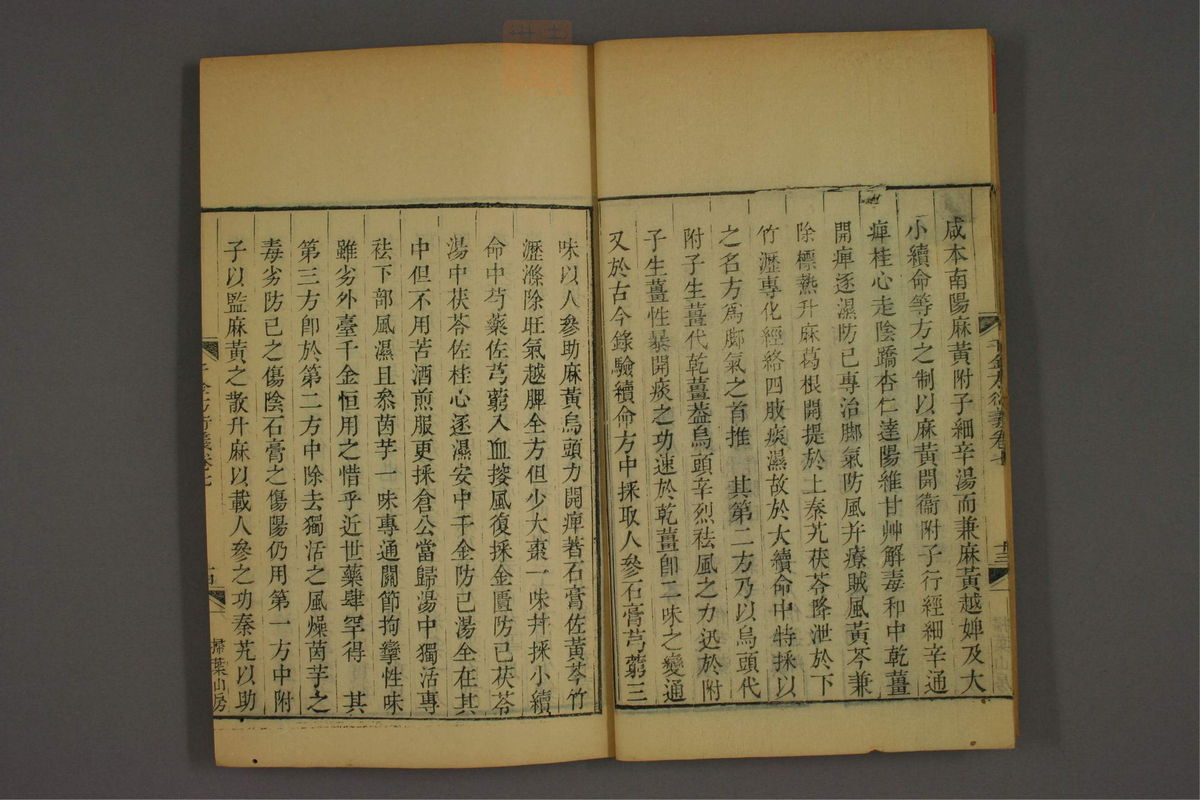 咸本南陽麻黃附子細辛湯而兼麻黃越婢及大
小續命等方之制以麻黃開衞附子行經細辛通
痺桂心走陰蹻杏仁達陽維甘艸解毒和中乾薑
開痺逐濕防已專治腳氣防風并療賊風黃芩兼
除標熱升麻葛根開提於上秦艽茯苓降泄於下
竹瀝專化經絡四肢痰濕故於大續命中特採以
之名方爲腳氣之首推　其第二方乃以烏頭代
附子生薑代乾薑葢烏頭辛烈祛風之力迅於附
子生薑性暴開痰之功速於乾薑卽二味之變通
又於古今錄驗續命方中採取人參石膏芎藭三
千金方衍義卷七
十三
味以人參助麻黃烏頭力開痺著石膏佐黃芩竹
瀝滌除旺氣越脾全方但少大棗一味幷採小續
命中芍藥佐芎藭入血搜風復採金匱防已茯苓
湯中茯苓佐桂心逐濕安中千金防已湯全在其
中但不用苦酒煎服更採倉公當歸湯中獨活專
祛下部風濕且叅茵芋一味專通關節拘攣性味
雖劣外臺千金恒用之惜乎近世藥肆罕得　其
第三方卽於第二方中除去獨活之風燥茵芋之
毒劣防已之傷陰石膏之傷陽仍用第一方中附
子以監麻黃之散升麻以載人參之功秦艽以助
千金方衍義卷七
掃葉山房